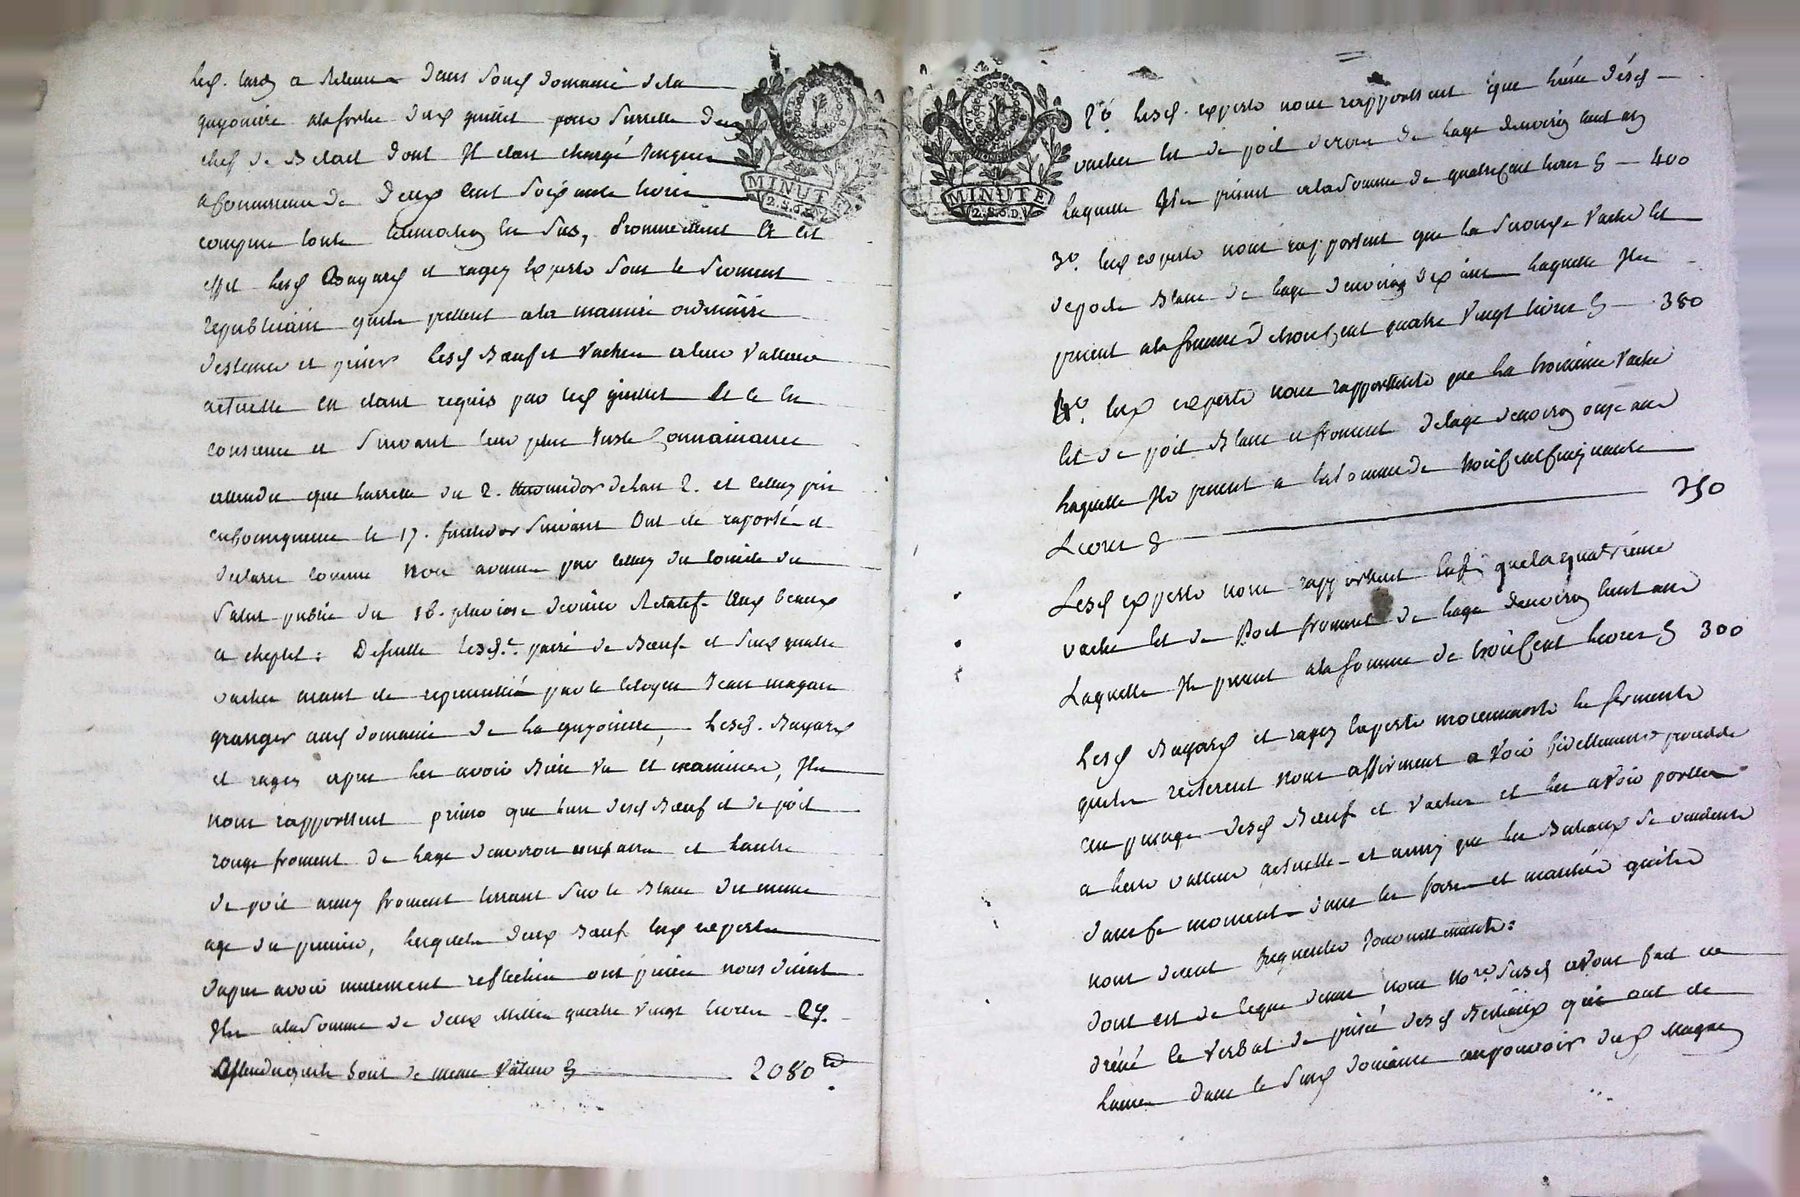 MINUTE
2.S.6.D.
a retenue dans domaine de la
guyoniere a la forme dud guillet pour
chef de Betail dont Il etoit chargé
de deux cent soixante livres
effet lesd Bayard et ragez Experts sous le serment
republicain quils pretent a la maniere ordinaire
destimer et priser lesd Bœuf et Vaches a leur valleur
actuelle en etant requis par led guillet et ce en
conscience et suivant leur plus juste Connaissance
attendu que larreté du 2. thermidor de lan 2. et celluy pris
le 17. fructidor suivant ont été raporté et
declaré comme non avenu par celluy du comité de
Salut public du 18. pluviose dernier Relatif aux beaux
a cheptel: Desquelle paire de Bœufs et quatre
vaches par le citoyen Jean magan
granger aud domaine de la guyoniere, Lesd. Bayard
et ragez apres les avoir Bien Vu et examinés, Ils
nous rapportent primo que lun desd Bœuf et de poil
rouge froment de lage denviron ans et lautre
de poil aussy froment tirant sur le Blanc du meme
age du premier, lesquels deux Bœuf lesd experts
dapres avoir murement reflechie ont prisés nous disent
Ils a la somme de deux Mille quatre vingt livres
quils sont de meme Valeur 2080
MINUTE
2.S.6.D.
2º Lesd. experts nous rapportent que lune desd
vaches est de poil de lage denviron huit ans
laquelle Ils prisent a la somme de quatre Cent livres 400
3º. lesd experts nous rapportent que la seconde Vache est
de poil Blanc de lage denviron dix ans laquelle Ils
prisent a la somme de trois Cent quatre Vingt livres 380
4º. lesd experts nous rapportent que la troisieme Vache
est de poil Blanc et froment de lage denviron onze ans
laquelle Ils prisent a la somme de trois Cent Cinquante
Livres 350
Lesd experts nous rapportent enfin que la quatrieme
vache est de Poil froment de lage denviron huit ans
Laquelle Ils prisent a la somme de trois Cent livres 300
Lesd Bayard et ragez Experts moiennant le serment
quils reiterent nous affirment avoir fidellement procédé
au prisage desd Bœuf et Vaches et les avoir portés
a leur valleur actuelle et aussy que les Betiaux se vendent
dans ce moment dans les foires et marchés quils
nous disent frequenter
dont et de ce que dessus nous No.re Susd avons fait et
dréssé le verbal de prisée desd Bestiaux qui ont été
laissés dans le susd domaine au pouvoir dud Magan